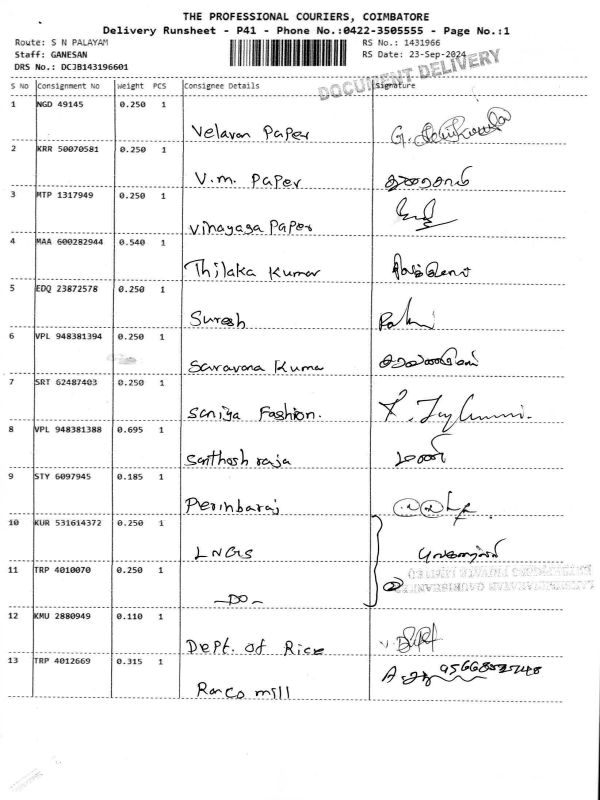 THE PROFESSIONAL COURIERS, COIMBATORE
Delivery Runsheet - P41 - Phone No.:0422-3505555 - Page No.:1
Route: S N PALAYAM RS No.: 1431966
Staff: GANESAN RS Date: 23-Sep-2024
DRS No.: DCJB143196601
DOCUMENT DELIVERY
S No Consignment No Weight PCS Consignee Details Signature
1 NGD 49145 0.250 1
Velavan Paper G.
2 KRR 50070581 0.250 1
V.m. Paper
3 MTP 1317949 0.250 1
Vinayaga Paper
4 MAA 600282944 0.540 1
Thilaka Kumar
5 EDQ 23872578 0.250 1
Suresh
6 VPL 948381394 0.250 1
Saravana Kuma சரவணகுமார்
7 SRT 62487403 0.250 1
Saniya Fashion.
8 VPL 948381388 0.695 1
Santhosh raja
9 STY 6097945 0.185 1
Perinbaraj
10 KUR 531614372 0.250 1
LNGS
11 TRP 4010070 0.250 1
-DO-
12 KMU 2880949 0.110 1
Dept. of Rice
13 TRP 4012669 0.315 1
Ranco mill